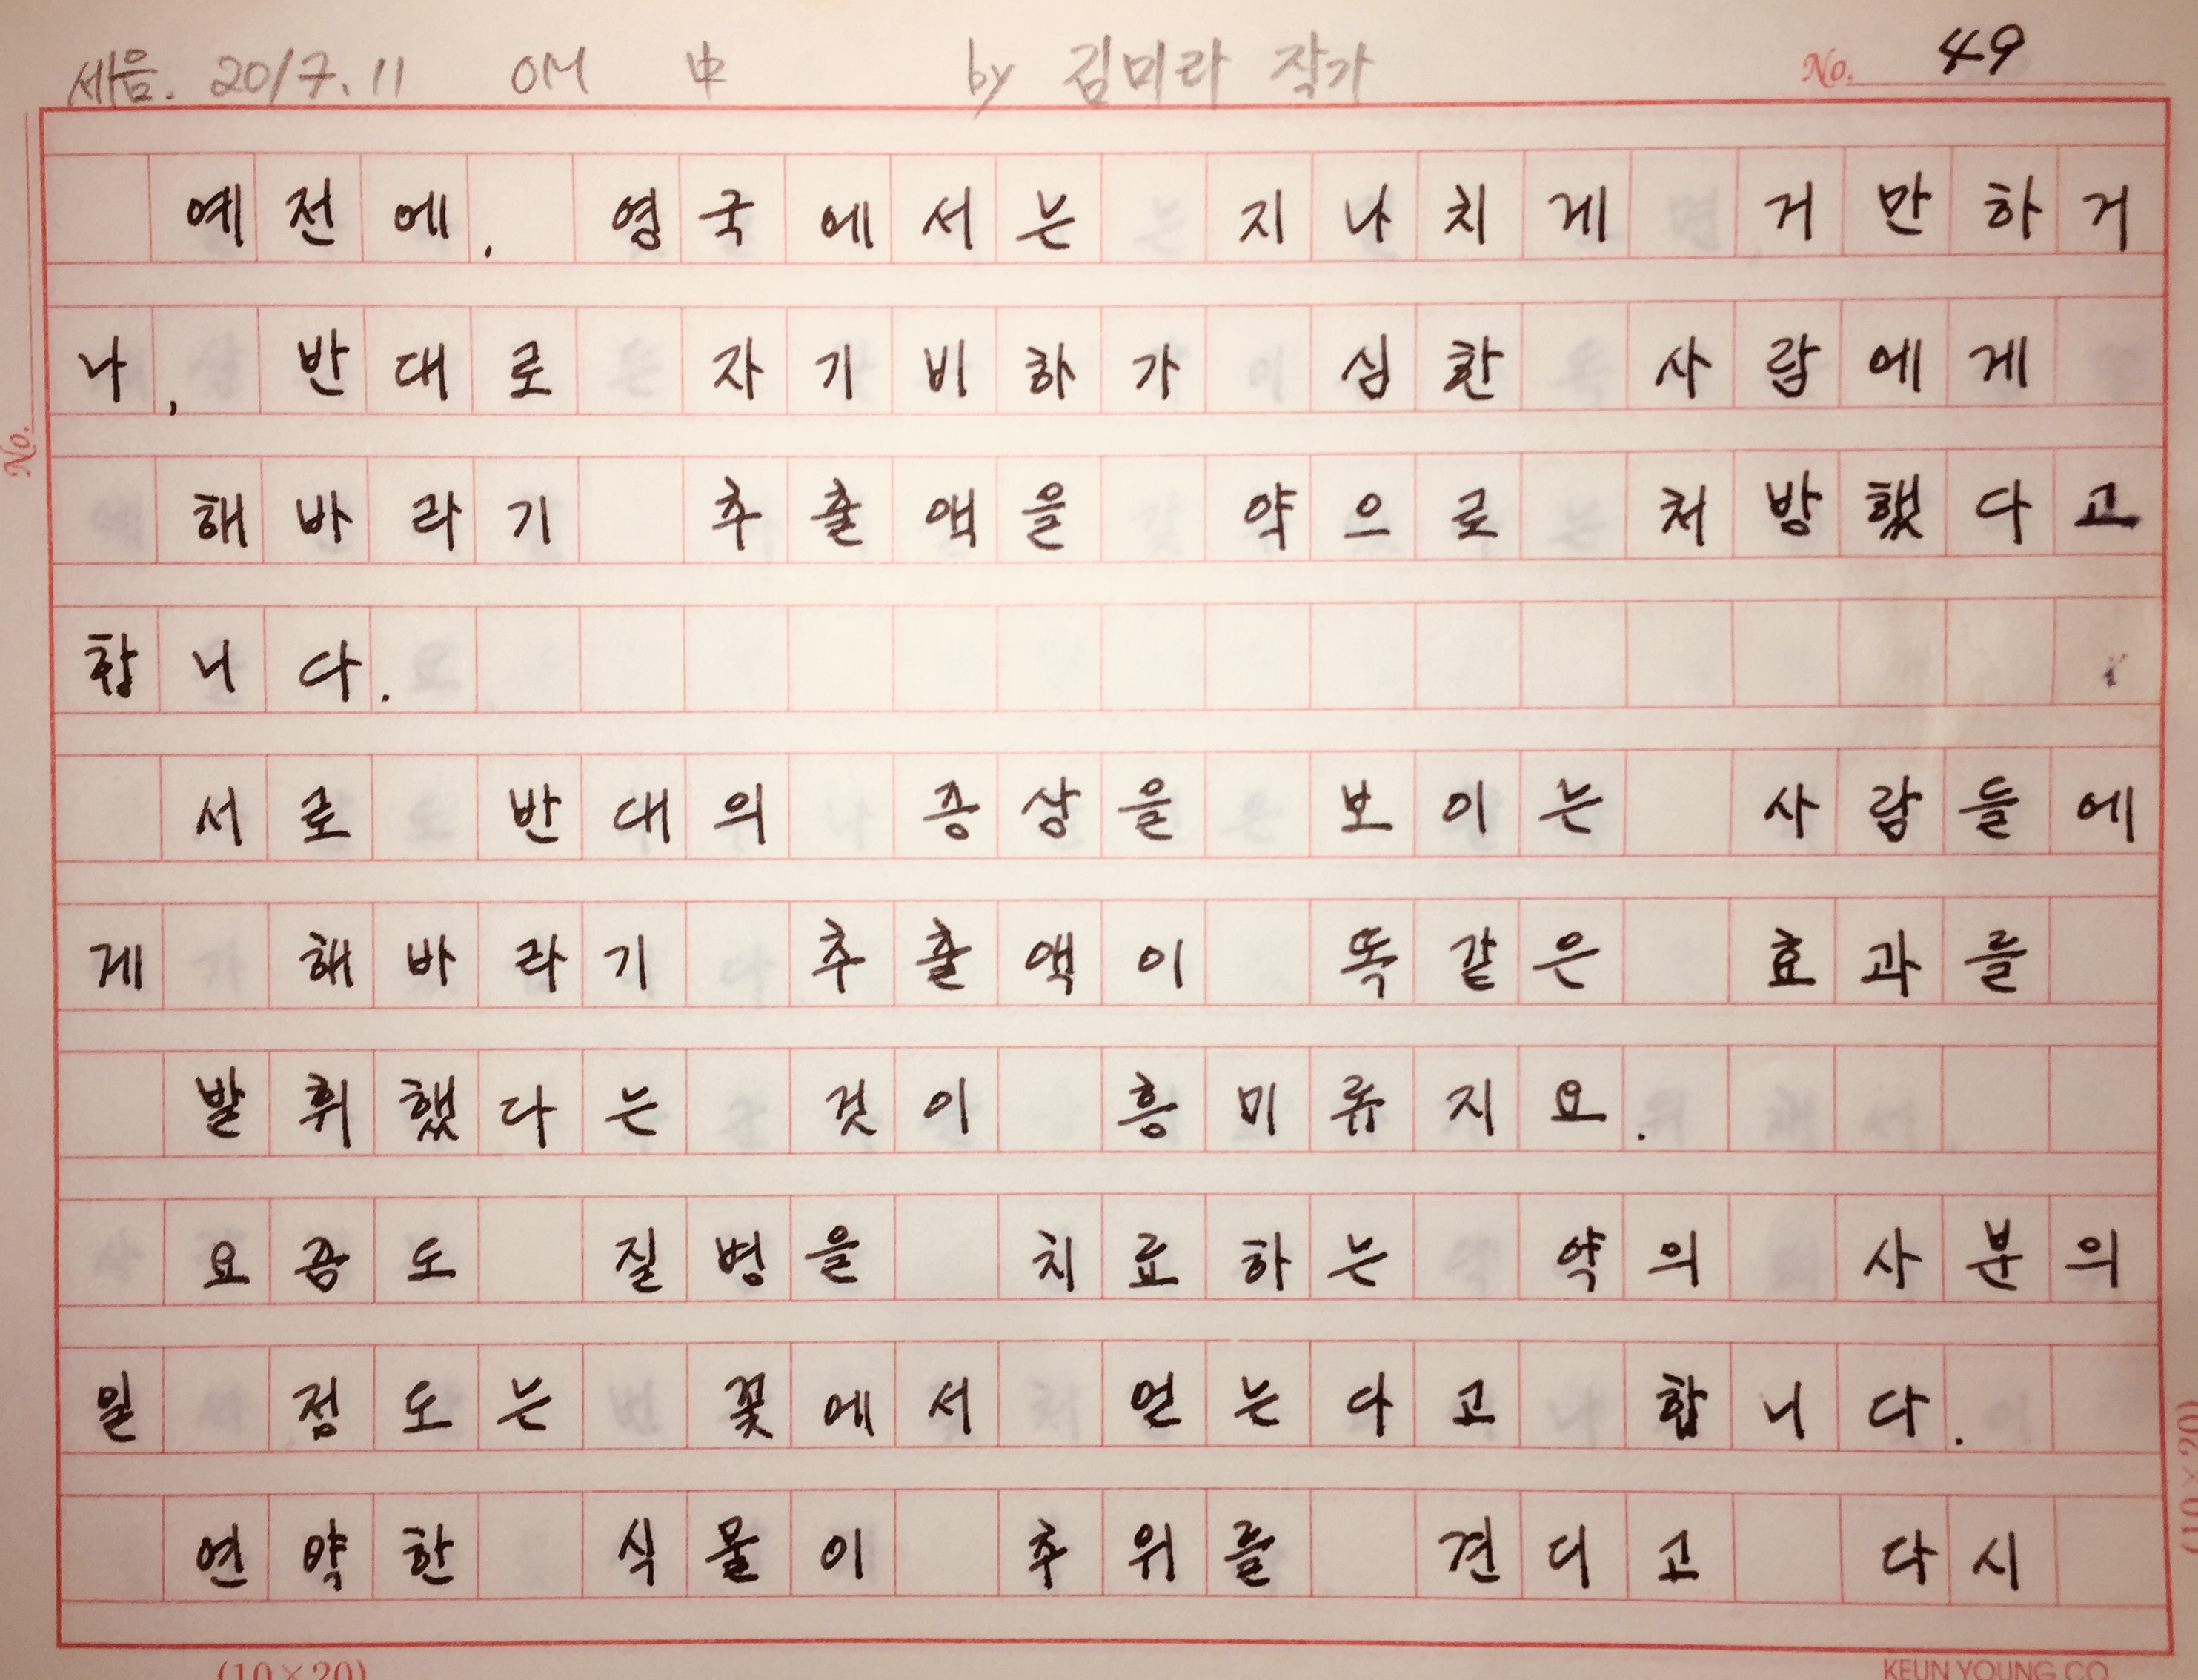 세음. 2017.11 OM 中 by 김미라 작가
No. 49
예전에, 영국에서는 지나치게 거만하거
나, 반대로 자기비하가 심한 사람에게
해바라기 추출액을 약으로 처방했다고
합니다.
서로 반대의 증상을 보이는 사람들에
게 해바라기 추출액이 똑같은 효과를
발휘했다는 것이 흥미롭지요.
요금도 질병을 치료하는 약의 사분의
일 정도는 꽃에서 얻는다고 합니다.
연약한 식물이 추위를 견디고 다시
No.
(10×20)
(10×20)
KEUN YOUNG CO.